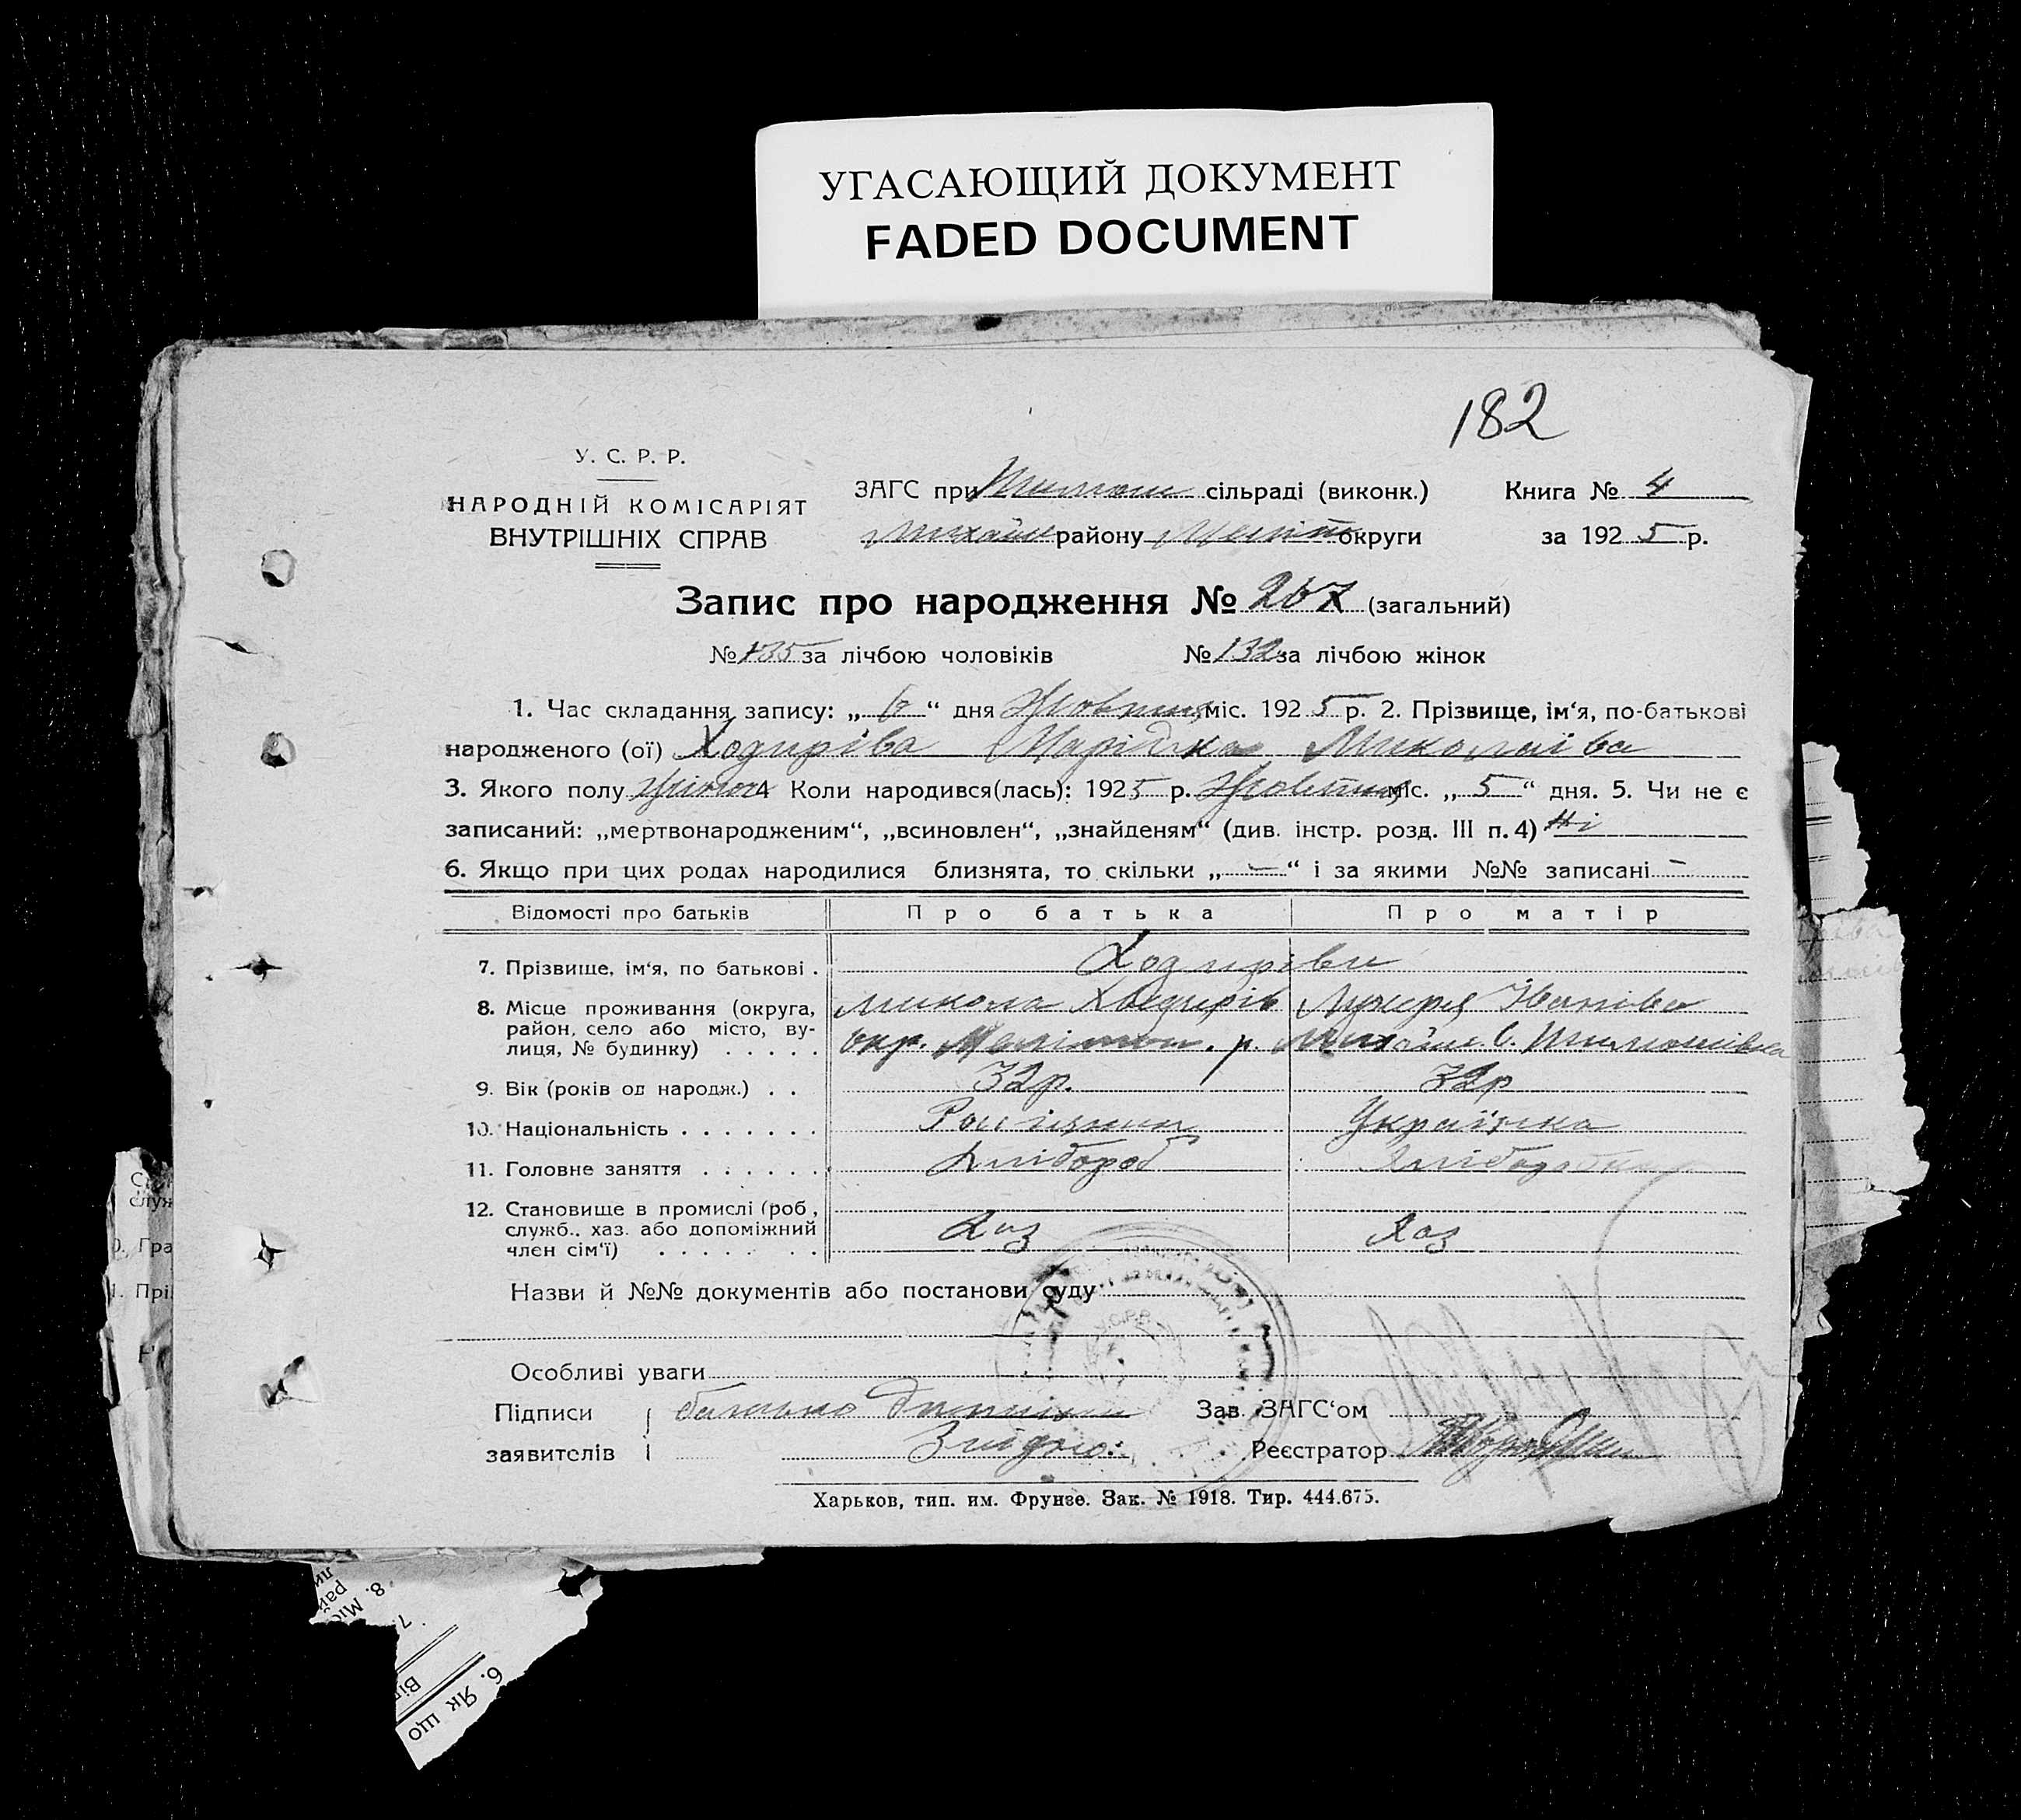 УГАСАЮЩИЙ ДОКУМЕНТ
FADED DOCUMENT
182
У. С. Р. Р.
НАРОДНІЙ КОМІСАРІЯТ
ВНУТРІШНІХ СПРАВ
ЗАГС при сільраді (виконк.)
Книга № 4
Михайл району Меліт округи
за 1925 р.
Запис про народження № 267 (загальний)
№ 135 за лічбою чоловіків
№ 132 за лічбою жінок
1. Час складання запису: „ 6 “ дня Жовтня міс. 1925 р. 2. Прізвище, ім‘я, по-батькові
народженого (ої) Ходирєва Марійка Миколаїва
3. Якого полу жіноч 4 Коли народився(лась): 1925 р. Жовтня міс. „ 5 “ дня. 5. Чи не є
записаний: „мертвонародженим“, „всиновлен“, „знайденям“ (див. інстр. розд. III п. 4) Ні
6. Якщо при цих родах народилися близнята, то скільки „ – “ і за якими №№ записані –
Відомості про батьків
Про батька
Про матір
7. Прізвище, ім‘я, по батькові .
8. Місце проживання (округа,
район, село або місто, ву-
лиця, № будинку) . . . . .
Микола
окр. р. с.
9. Вік (років од народж.) . .
32р.
32р
10. Національність . . . . . . .
Українка
11. Головне заняття . . . . . .
Хлібороб
12. Становище в промислі (роб.,
служб., хаз. або допоміжний
член сім‘ї) . . . . . . .
Хаз
Хаз
Назви й №№ документів або постанови суду
У.С.Р.Р.
Особливі уваги
Підписи
батько
Зав. ЗАГС‘ом
заявителів
Реєстратор
Харьков, тип. им. Фрунзе. Зак. № 1918. Тир. 444.675.